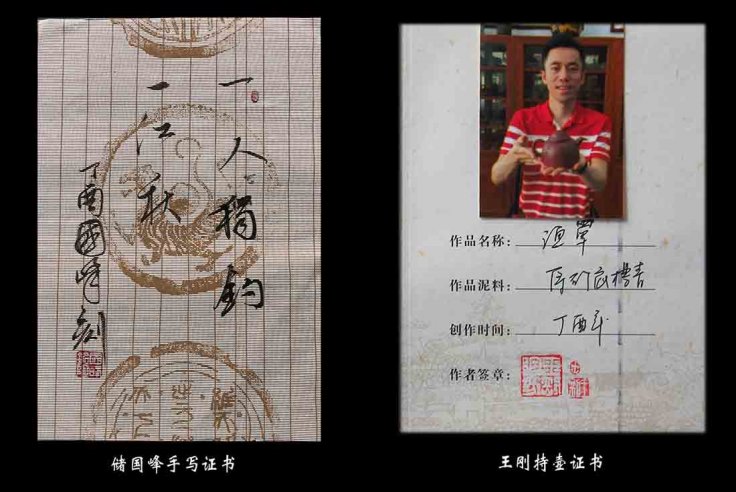 一人獨钓
一江秋
丁酉國峰刻
储国峰手写证书
作品名称：渔罩
作品泥料：原矿底槽青
创作时间：丁酉年
作者签章：
王刚持壶证书